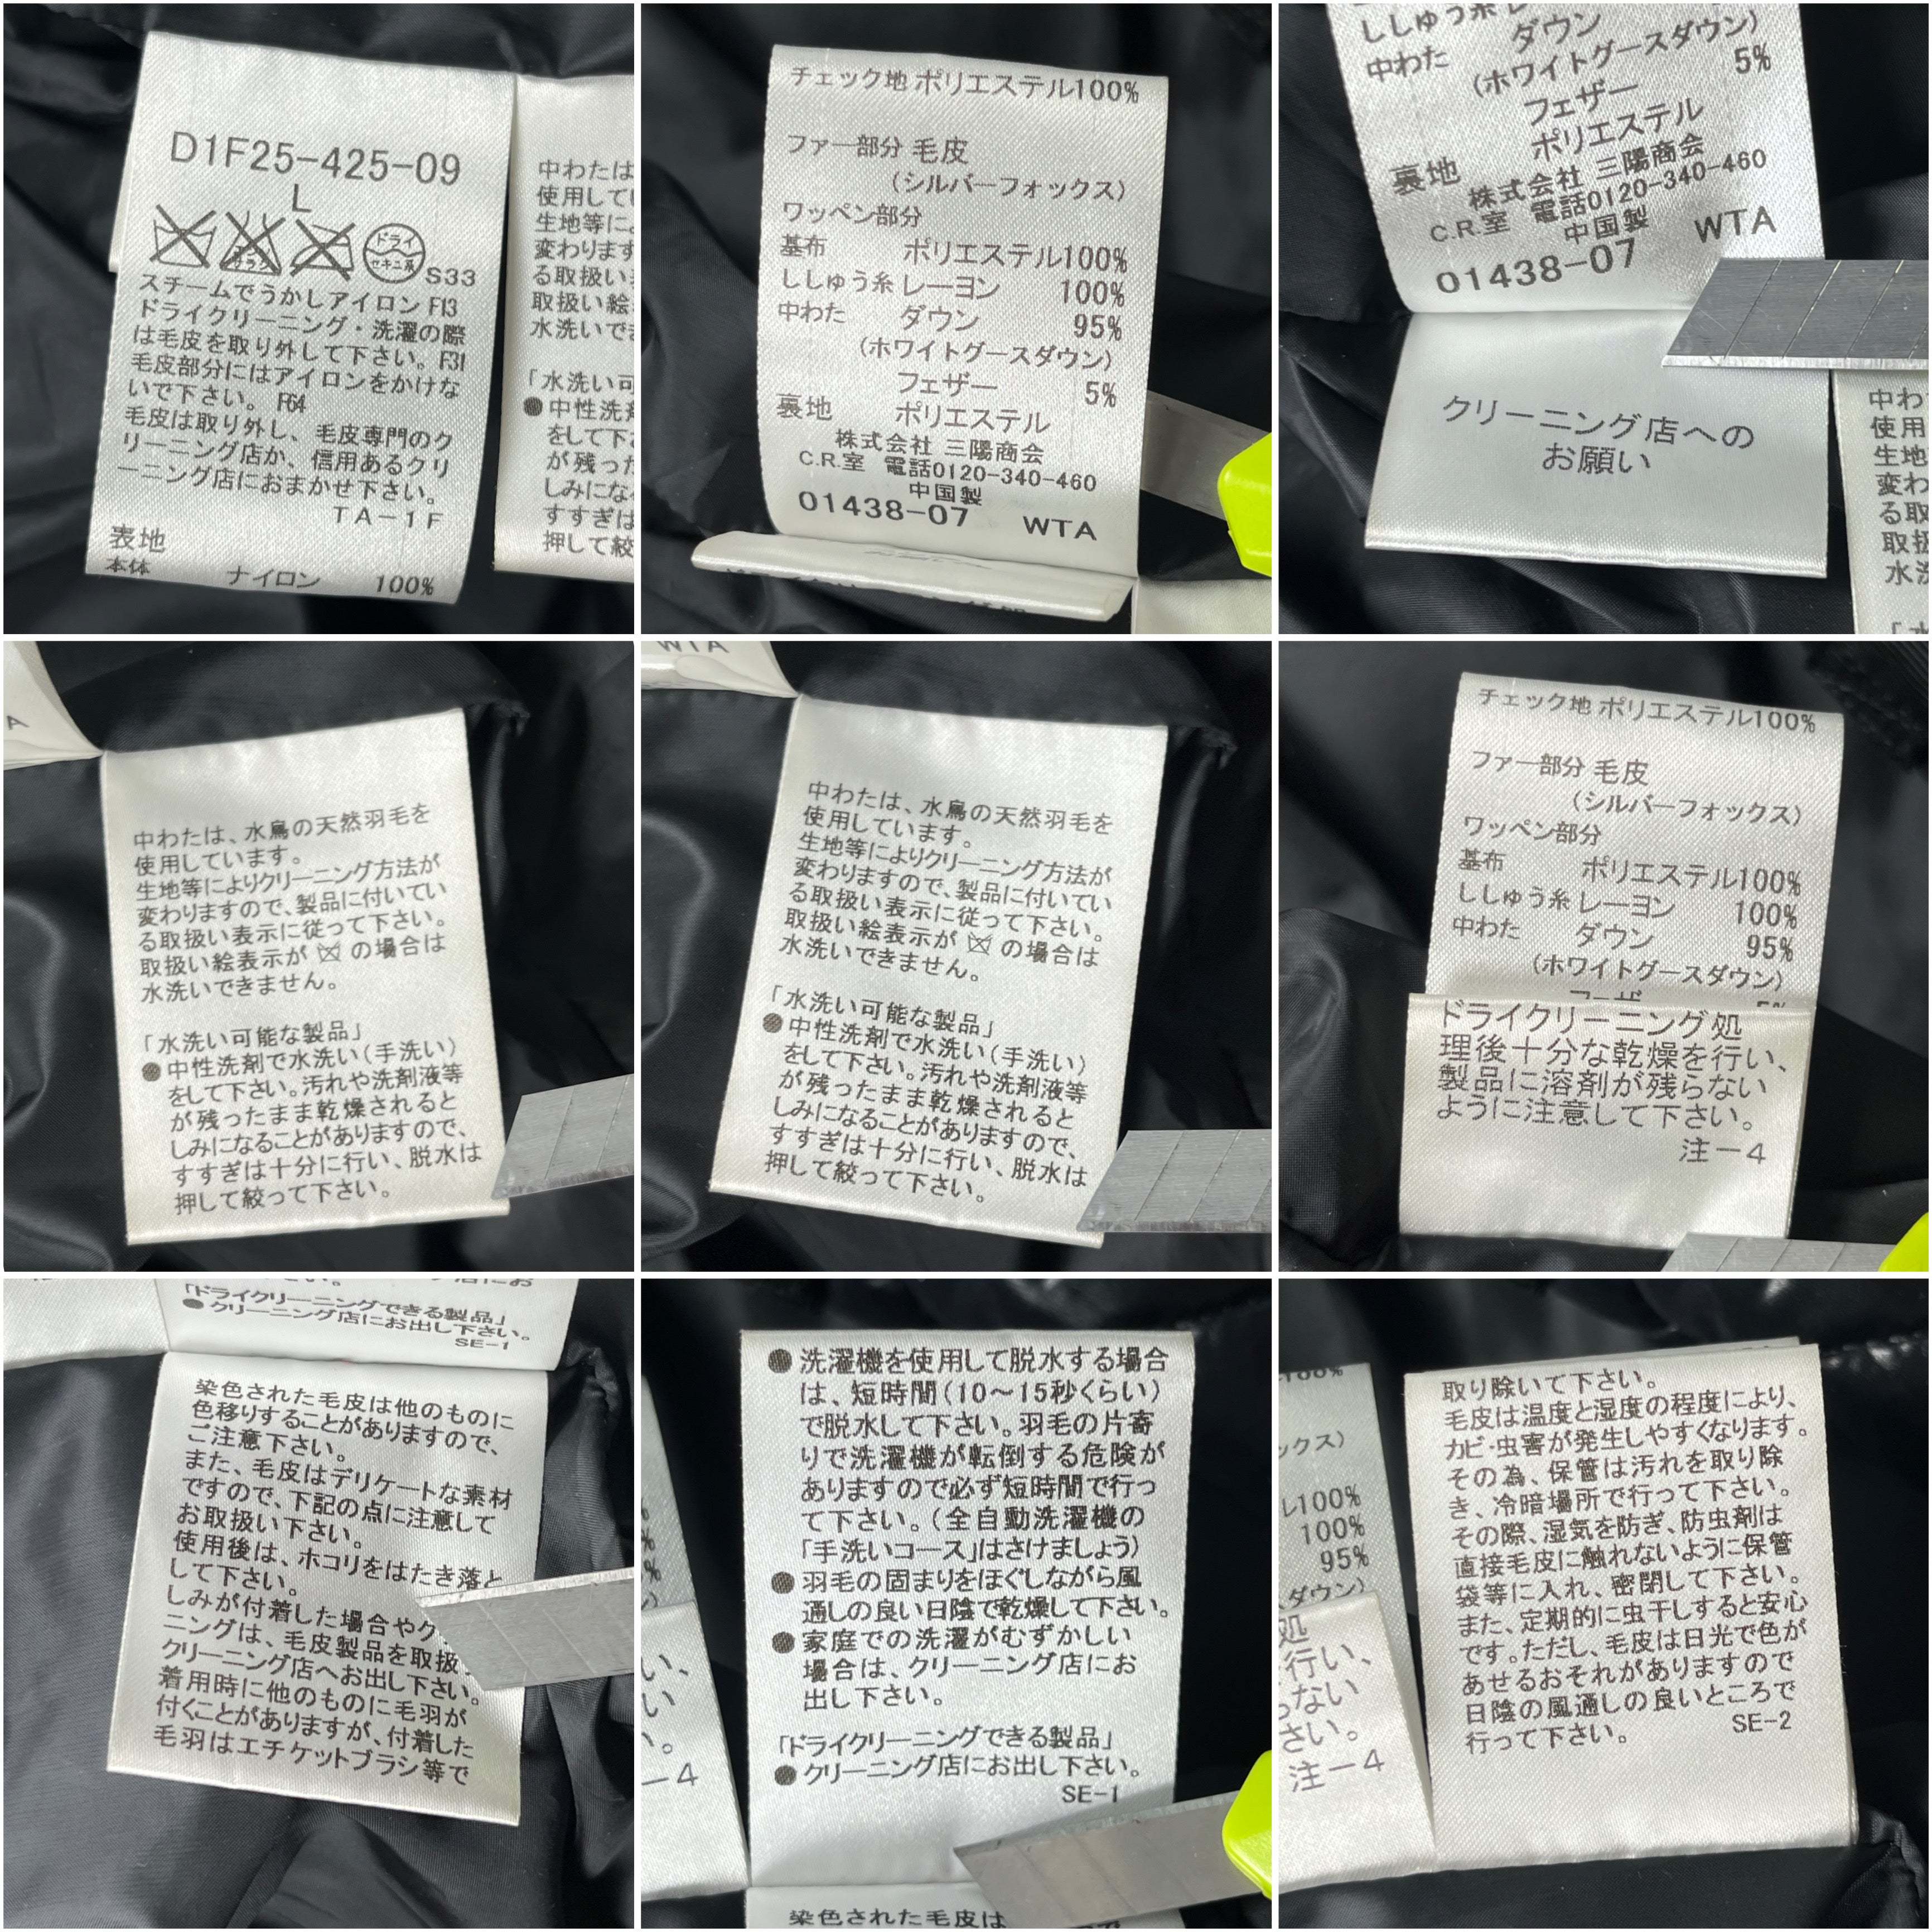 D1F25-425-09
L
ドライ
セキユ系
S33
スチームでうかしアイロン F13
ドライクリーニング・洗濯の際
は毛皮を取り外して下さい。F31
毛皮部分にはアイロンをかけな
いで下さい。F64
毛皮は取り外し、毛皮専門のク
リーニング店か、信用あるクリ
ーニング店におまかせ下さい。
TA-1F
表地
本体 ナイロン 100%
中わたは
使用してい
生地等によ
変わります
る取扱い
取扱い絵
水洗いでき
「水洗い可
●中性洗剤
をして下さ
が残った
しみにな
すすぎは
押して絞
チェック地 ポリエステル100%
ファー部分 毛皮
(シルバーフォックス)
ワッペン部分
基布 ポリエステル100%
ししゅう糸 レーヨン 100%
中わた ダウン 95%
(ホワイトグースダウン)
フェザー 5%
裏地 ポリエステル
株式会社 三陽商会
C.R.室 電話0120-340-460
中国製
01438-07 WTA
ししゅう糸 レ
中わた ダウン
(ホワイトグースダウン)
フェザー 5%
裏地 ポリエステル
株式会社 三陽商会
C.R.室 電話0120-340-460
中国製
01438-07 WTA
クリーニング店への
お願い
中わ
使用
生地
変わ
る取
取扱
水洗
A
中わたは、水鳥の天然羽毛を
使用しています。
生地等によりクリーニング方法が
変わりますので、製品に付いてい
る取扱い表示に従って下さい。
取扱い絵表示が の場合は
水洗いできません。
「水洗い可能な製品」
●中性洗剤で水洗い(手洗い)
をして下さい。汚れや洗剤液等
が残ったまま乾燥されると
しみになることがありますので、
すすぎは十分に行い、脱水は
押して絞って下さい。
WTA
中わたは、水鳥の天然羽毛を
使用しています。
生地等によりクリーニング方法が
変わりますので、製品に付いてい
る取扱い表示に従って下さい。
取扱い絵表示が の場合は
水洗いできません。
「水洗い可能な製品」
●中性洗剤で水洗い(手洗い)
をして下さい。汚れや洗剤液等
が残ったまま乾燥されると
しみになることがありますので、
すすぎは十分に行い、脱水は
押して絞って下さい。
チェック地 ポリエステル100%
ファー部分 毛皮
(シルバーフォックス)
ワッペン部分
基布 ポリエステル100%
ししゅう糸 レーヨン 100%
中わた ダウン 95%
(ホワイトグースダウン)
フェザー 5%
ドライクリーニング処
理後十分な乾燥を行い、
製品に溶剤が残らない
ように注意して下さい。
注-4
「ドライクリーニングできる製品」
●クリーニング店にお出し下さい。
SE-1
染色された毛皮は他のものに
色移りすることがありますので、
ご注意下さい。
また、毛皮はデリケートな素材
ですので、下記の点に注意して
お取扱い下さい。
使用後は、ホコリをはたき落と
して下さい。
しみが付着した場合やク
ニングは、毛皮製品を取扱
クリーニング店へお出し下さい。
着用時に他のものに毛羽が
付くことがありますが、付着した
毛羽はエチケットブラシ等で
●洗濯機を使用して脱水する場合
は、短時間(10〜15秒くらい)
で脱水して下さい。羽毛の片寄
りで洗濯機が転倒する危険が
ありますので必ず短時間で行っ
て下さい。(全自動洗濯機の
「手洗いコース」はさけましょう)
●羽毛の固まりをほぐしながら風
通しの良い日陰で乾燥して下さい。
●家庭での洗濯がむずかしい
場合は、クリーニング店にお
出し下さい。
「ドライクリーニングできる製品」
●クリーニング店にお出し下さい。
SE-1
染色された毛皮は
い、
い
。
-4
100%
ックス)
ル100%
100%
95%
ダウン)
処
行い、
らない
さい。
注-4
取り除いて下さい。
毛皮は温度と湿度の程度により、
カビ・虫害が発生しやすくなります。
その為、保管は汚れを取り除
き、冷暗場所で行って下さい。
その際、湿気を防ぎ、防虫剤は
直接毛皮に触れないように保管
袋等に入れ、密閉して下さい。
また、定期的に虫干しすると安心
です。ただし、毛皮は日光で色が
あせるおそれがありますので
日陰の風通しの良いところで
行って下さい。 SE-2